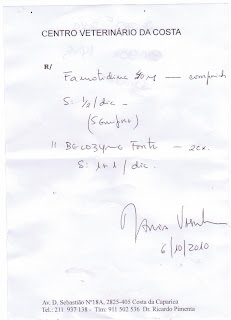 CENTRO VETERINÁRIO DA COSTA
R/
Famotidine 20 mg — comprid
S: 1/2 / dia -
(Sempre)
II Becozyme Forte - 2cx.
S: 1 / dia.
6/10/2010
Av. D. Sebastião Nº18A, 2825-405 Costa da Caparica
Tel.: 211 937 138 - Tlm: 911 502 536 Dr. Ricardo Pimenta